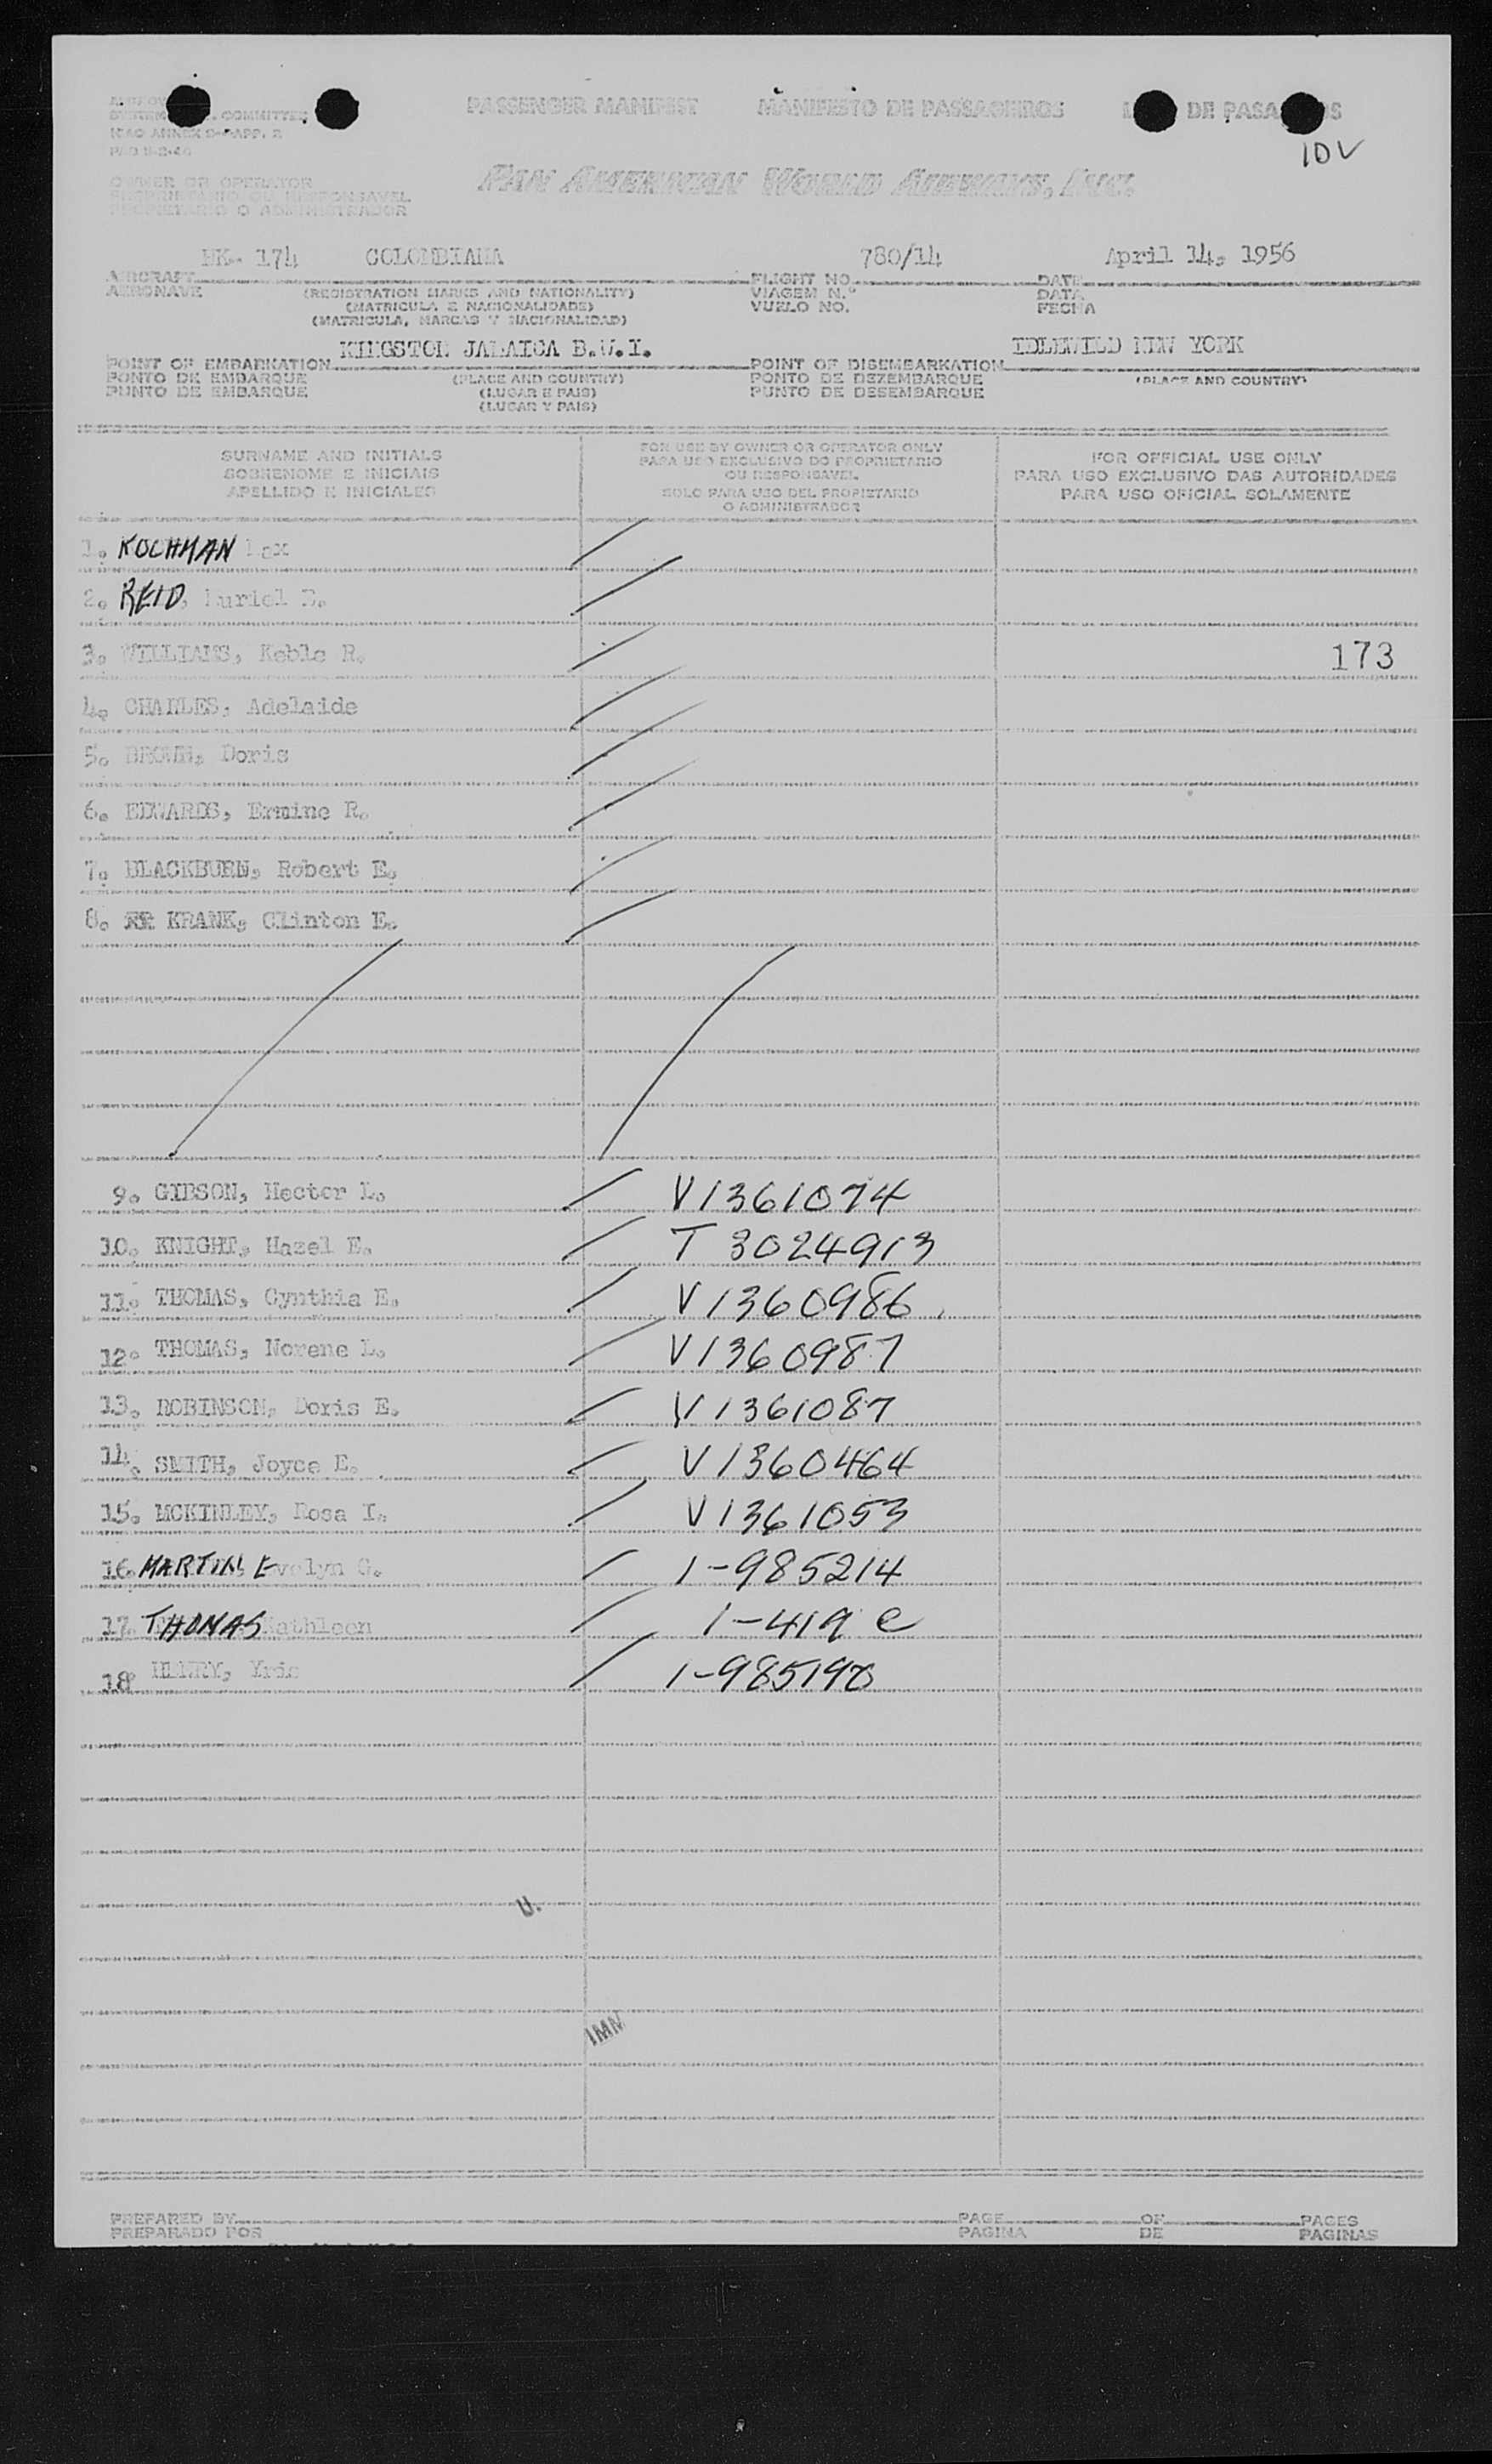 PASSENGER MANIFEST MANIFESTO DE PASSAGEIROS DE PASA
COMMITTEE
ICAO ANNEX 9-APP. 2
10V
OWNER OR OPERATOR
PROPRIETARIO OU RESPONSAVEL
PROPIETARIO O ADMINISTRADOR
PAN AMERICAN WORLD AIRWAYS, INC.
HK- 174 COLOMBIANA 780/14 April 14, 1956
AIRCRAFT FLIGHT NO. DATE
AERONAVE (REGISTRATION MARKS AND NATIONALITY) VIAGEM N.º DATA
(MATRICULA E NACIONALIDADE) VUELO NO. FECHA
(MATRICULA, MARCAS Y NACIONALIDAD)
KINGSTON JAMAICA B.W.I. IDLEWILD NEW YORK
POINT OF EMBARKATION POINT OF DISEMBARKATION
PONTO DE EMBARQUE (PLACE AND COUNTRY) PONTO DE DEZEMBARQUE (PLACE AND COUNTRY)
PUNTO DE EMBARQUE (LUGAR E PAIS) PUNTO DE DESEMBARQUE
(LUGAR Y PAIS)
SURNAME AND INITIALS
SOBRENOME E INICIAIS
APELLIDO E INICIALES
FOR USE BY OWNER OR OPERATOR ONLY
PARA USO EXCLUSIVO DO PROPRIETARIO
OU RESPONSAVEL
SOLO PARA USO DEL PROPIETARIO
O ADMINISTRADOR
FOR OFFICIAL USE ONLY
PARA USO EXCLUSIVO DAS AUTORIDADES
PARA USO OFICIAL SOLAMENTE
1. KOCHMAN Max
2. REID, Muriel E.
3. WILLIAMS, Keble R. 173
4. CHARLES, Adelaide
5. BROWN, Doris
6. EDWARDS, Ermine R.
7. BLACKBURN, Robert E.
8. KRANK, Clinton E.
9. GIBSON, Hector L. V1361074
10. KNIGHT, Hazel E. T 3024913
11. THOMAS, Cynthia E. V1360986
12. THOMAS, Norene L. V1360987
13. ROBINSON, Doris E. V1361087
14. SMITH, Joyce E. V1360464
15. MCKINLEY, Rosa I. V1361053
16. MARTIN, Evelyn G. 1-985214
17. THOMAS Kathleen 1-419 C
18 HENRY, Yris 1-985198
U.
IMM
PREPARED BY PAGE OF PAGES
PREPARADO POR PAGINA DE PAGINAS